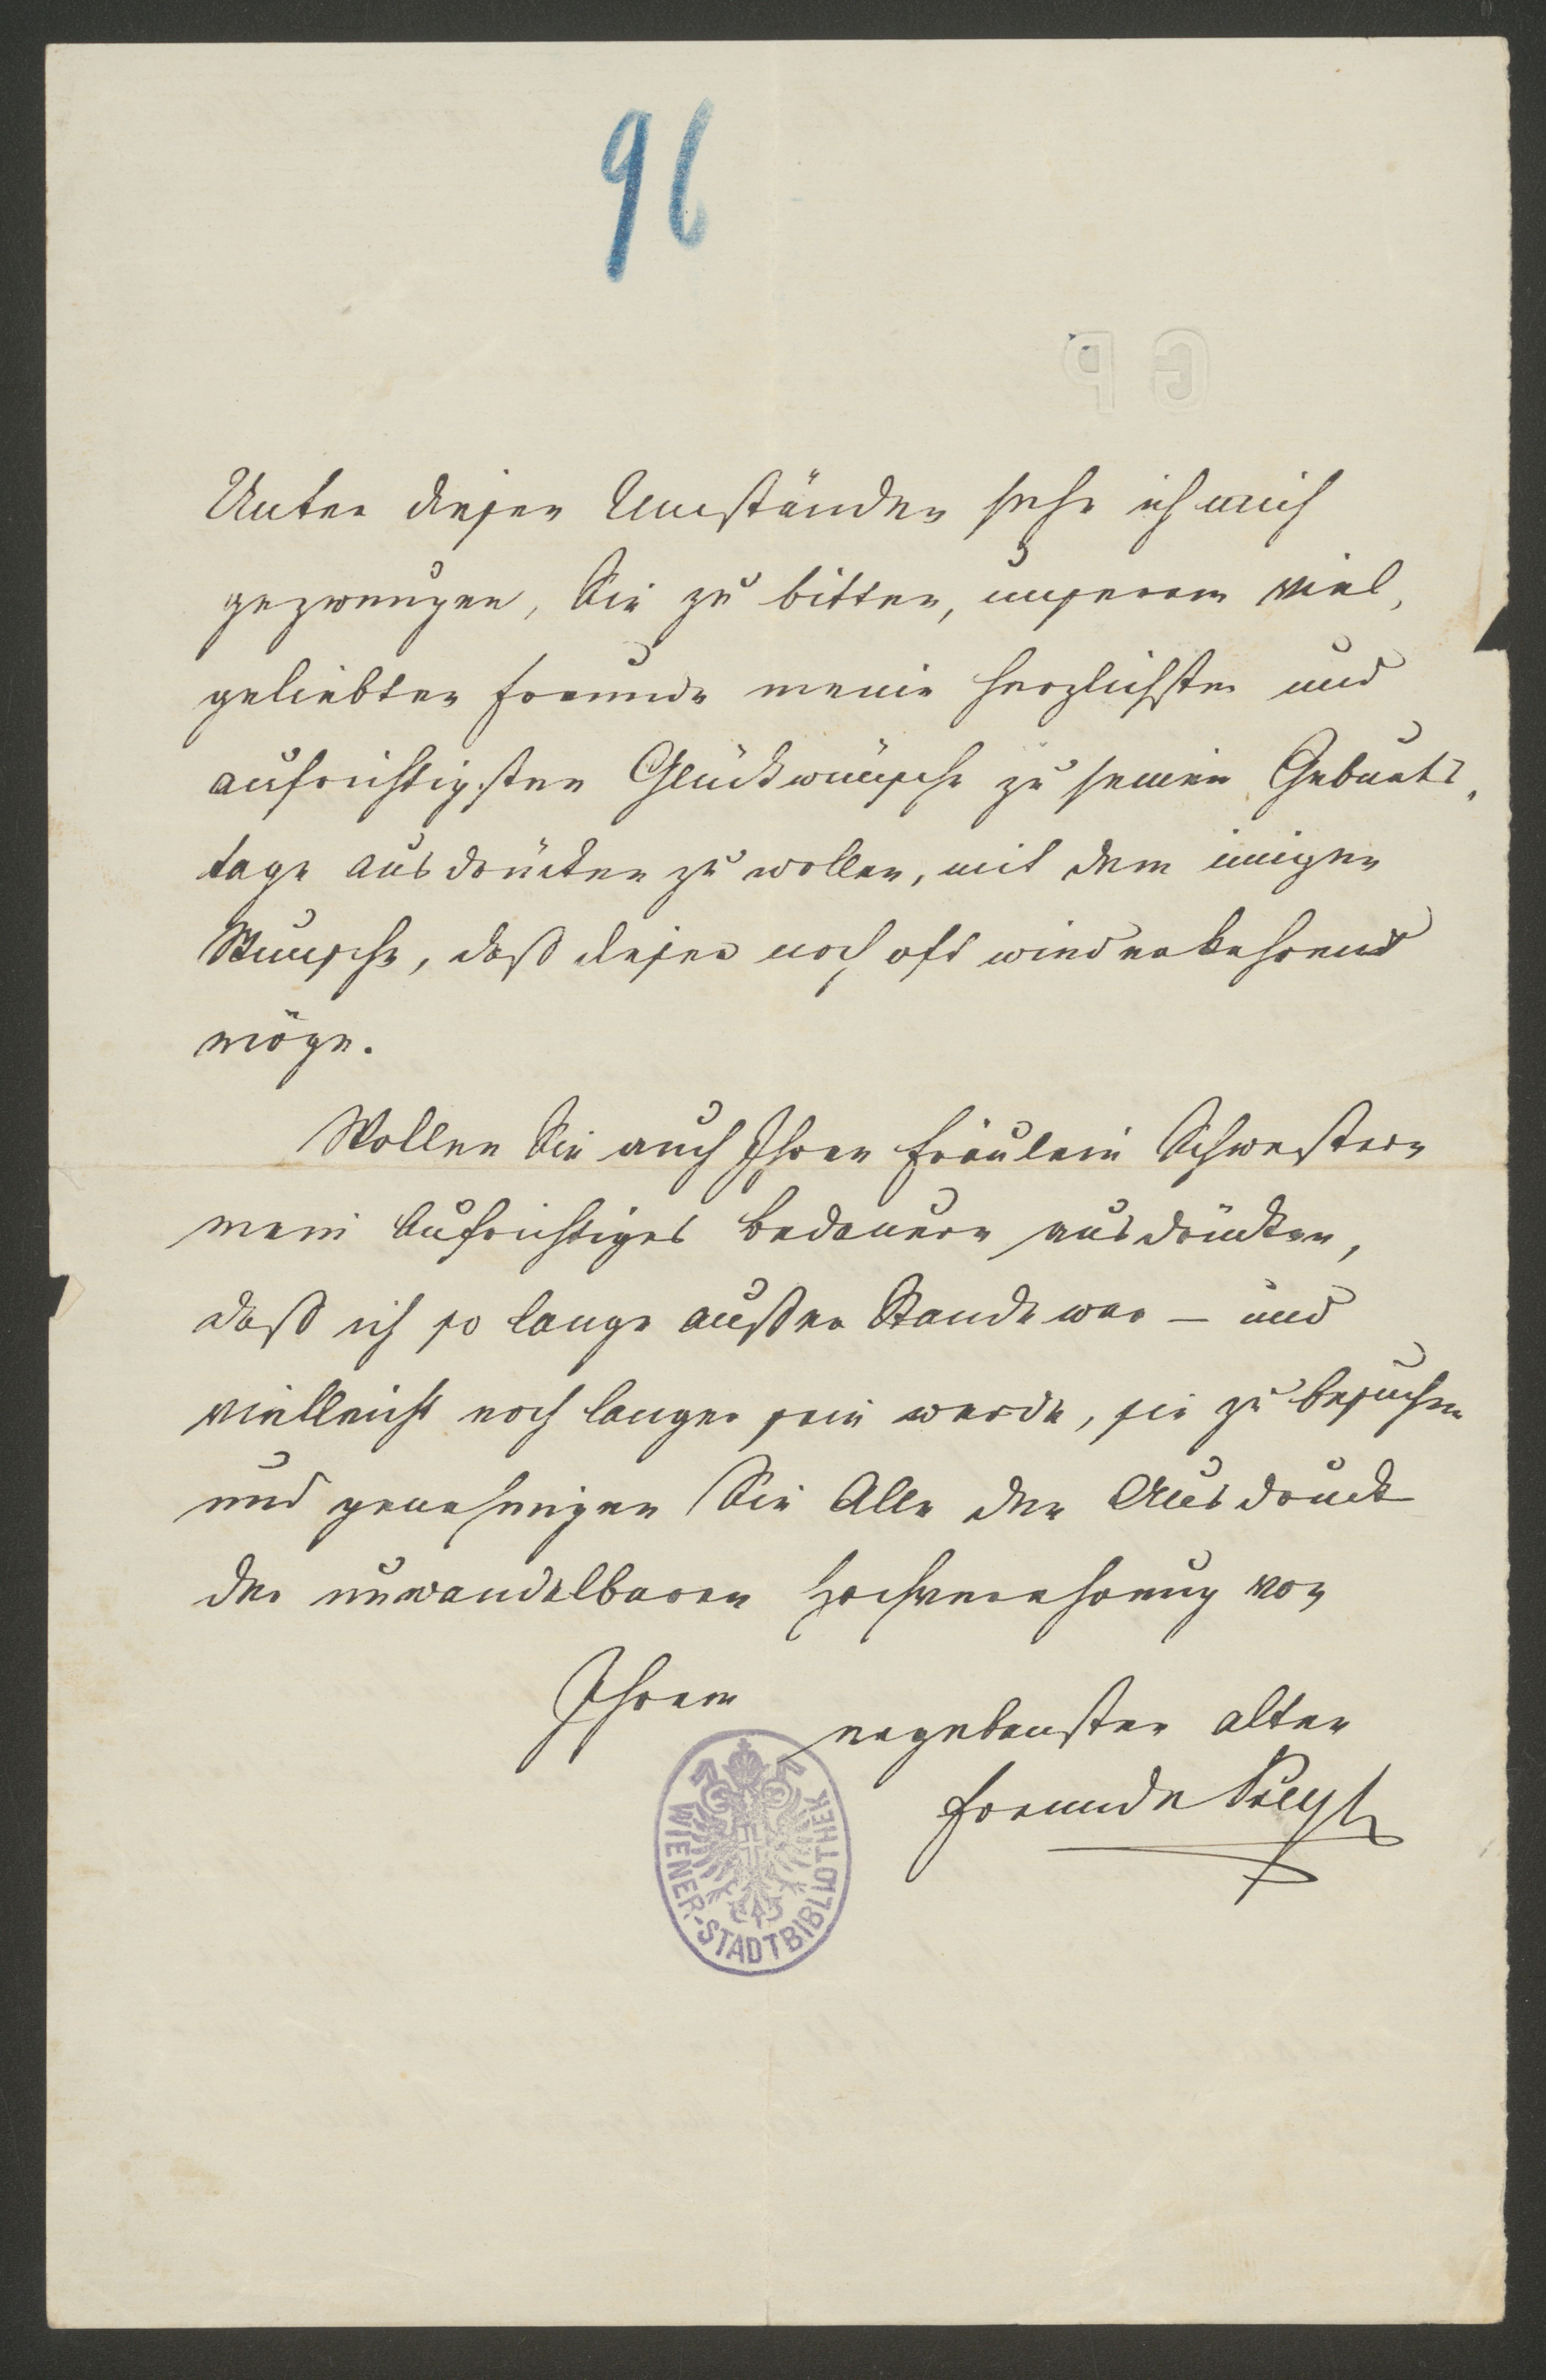 96
GP
Unter diesen Umständen sehe ich mich
gezwungen, Sie zu bitten, unserem viel,
geliebten Freunde meine herzlichsten und
aufrichtigsten Glückwünsche zu seinem Geburts,
tage ausdrücken zu wollen, mit dem innigen
Wunsche, daß dieser noch oft wiederkehren
möge.
Wollen Sie auch Ihren Fräulein Schwestern
mein aufrichtiges Bedauern ausdrücken,
daß ich so lange außer Stande war – und
vielleicht noch länger sein werde, sie zu besuchen
und genehmigen Sie Alle den Ausdruck
der unwandelbaren Hochverehrung von
Ihrem
ergebensten alten
Freunde
WIENER-STADTBIBLIOTHEK